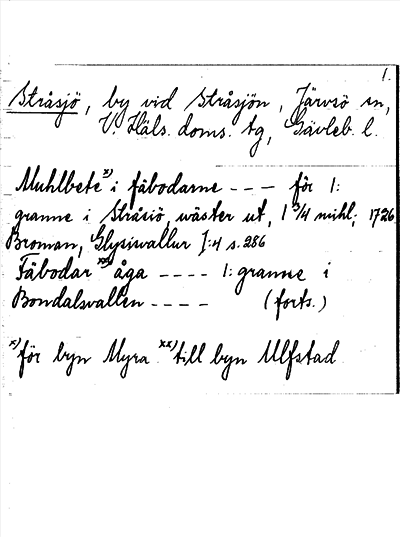 1.
Stråsjö, by vid Stråsjön, Järvsö sn,
V. Häls. doms. tg, Gävleb. l.
Muhlbete x) i fäbodarne --- för 1:
granne i Stråsiö, wäster ut, 1 3/4 mihl; 1726
Broman, Glysisvallur I:4 s. 286
Fäbodar xx) åga ---- 1: granne i
Bondalsvallen ---- (forts.)
x) för byn Myra xx) till byn Ulfstad